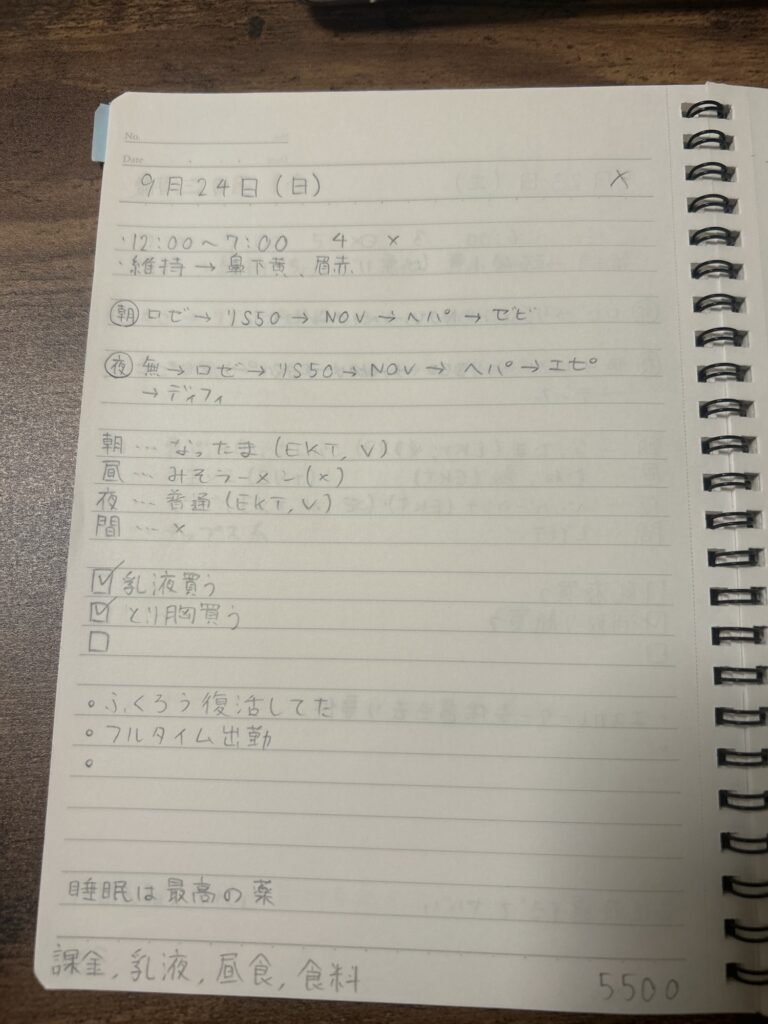 No.
Date
9月24日(日) ×
・12:00〜7:00 4 ×
・維持→鼻下黄、眉赤
朝 ロゼ→リS50→NOV→ヘパ→ゼビ
夜 無→ロゼ→リS50→NOV→ヘパ→エピ
→ディフィ
朝…なったま(EKT,V)
昼…みそラーメン(×)
夜…普通(EKT,V)
間…×
☑乳液買う
☑とり胸買う
☐
○ふくろう復活してた
○フルタイム出勤
○
睡眠は最高の薬
課金,乳液,昼食,食料 5500